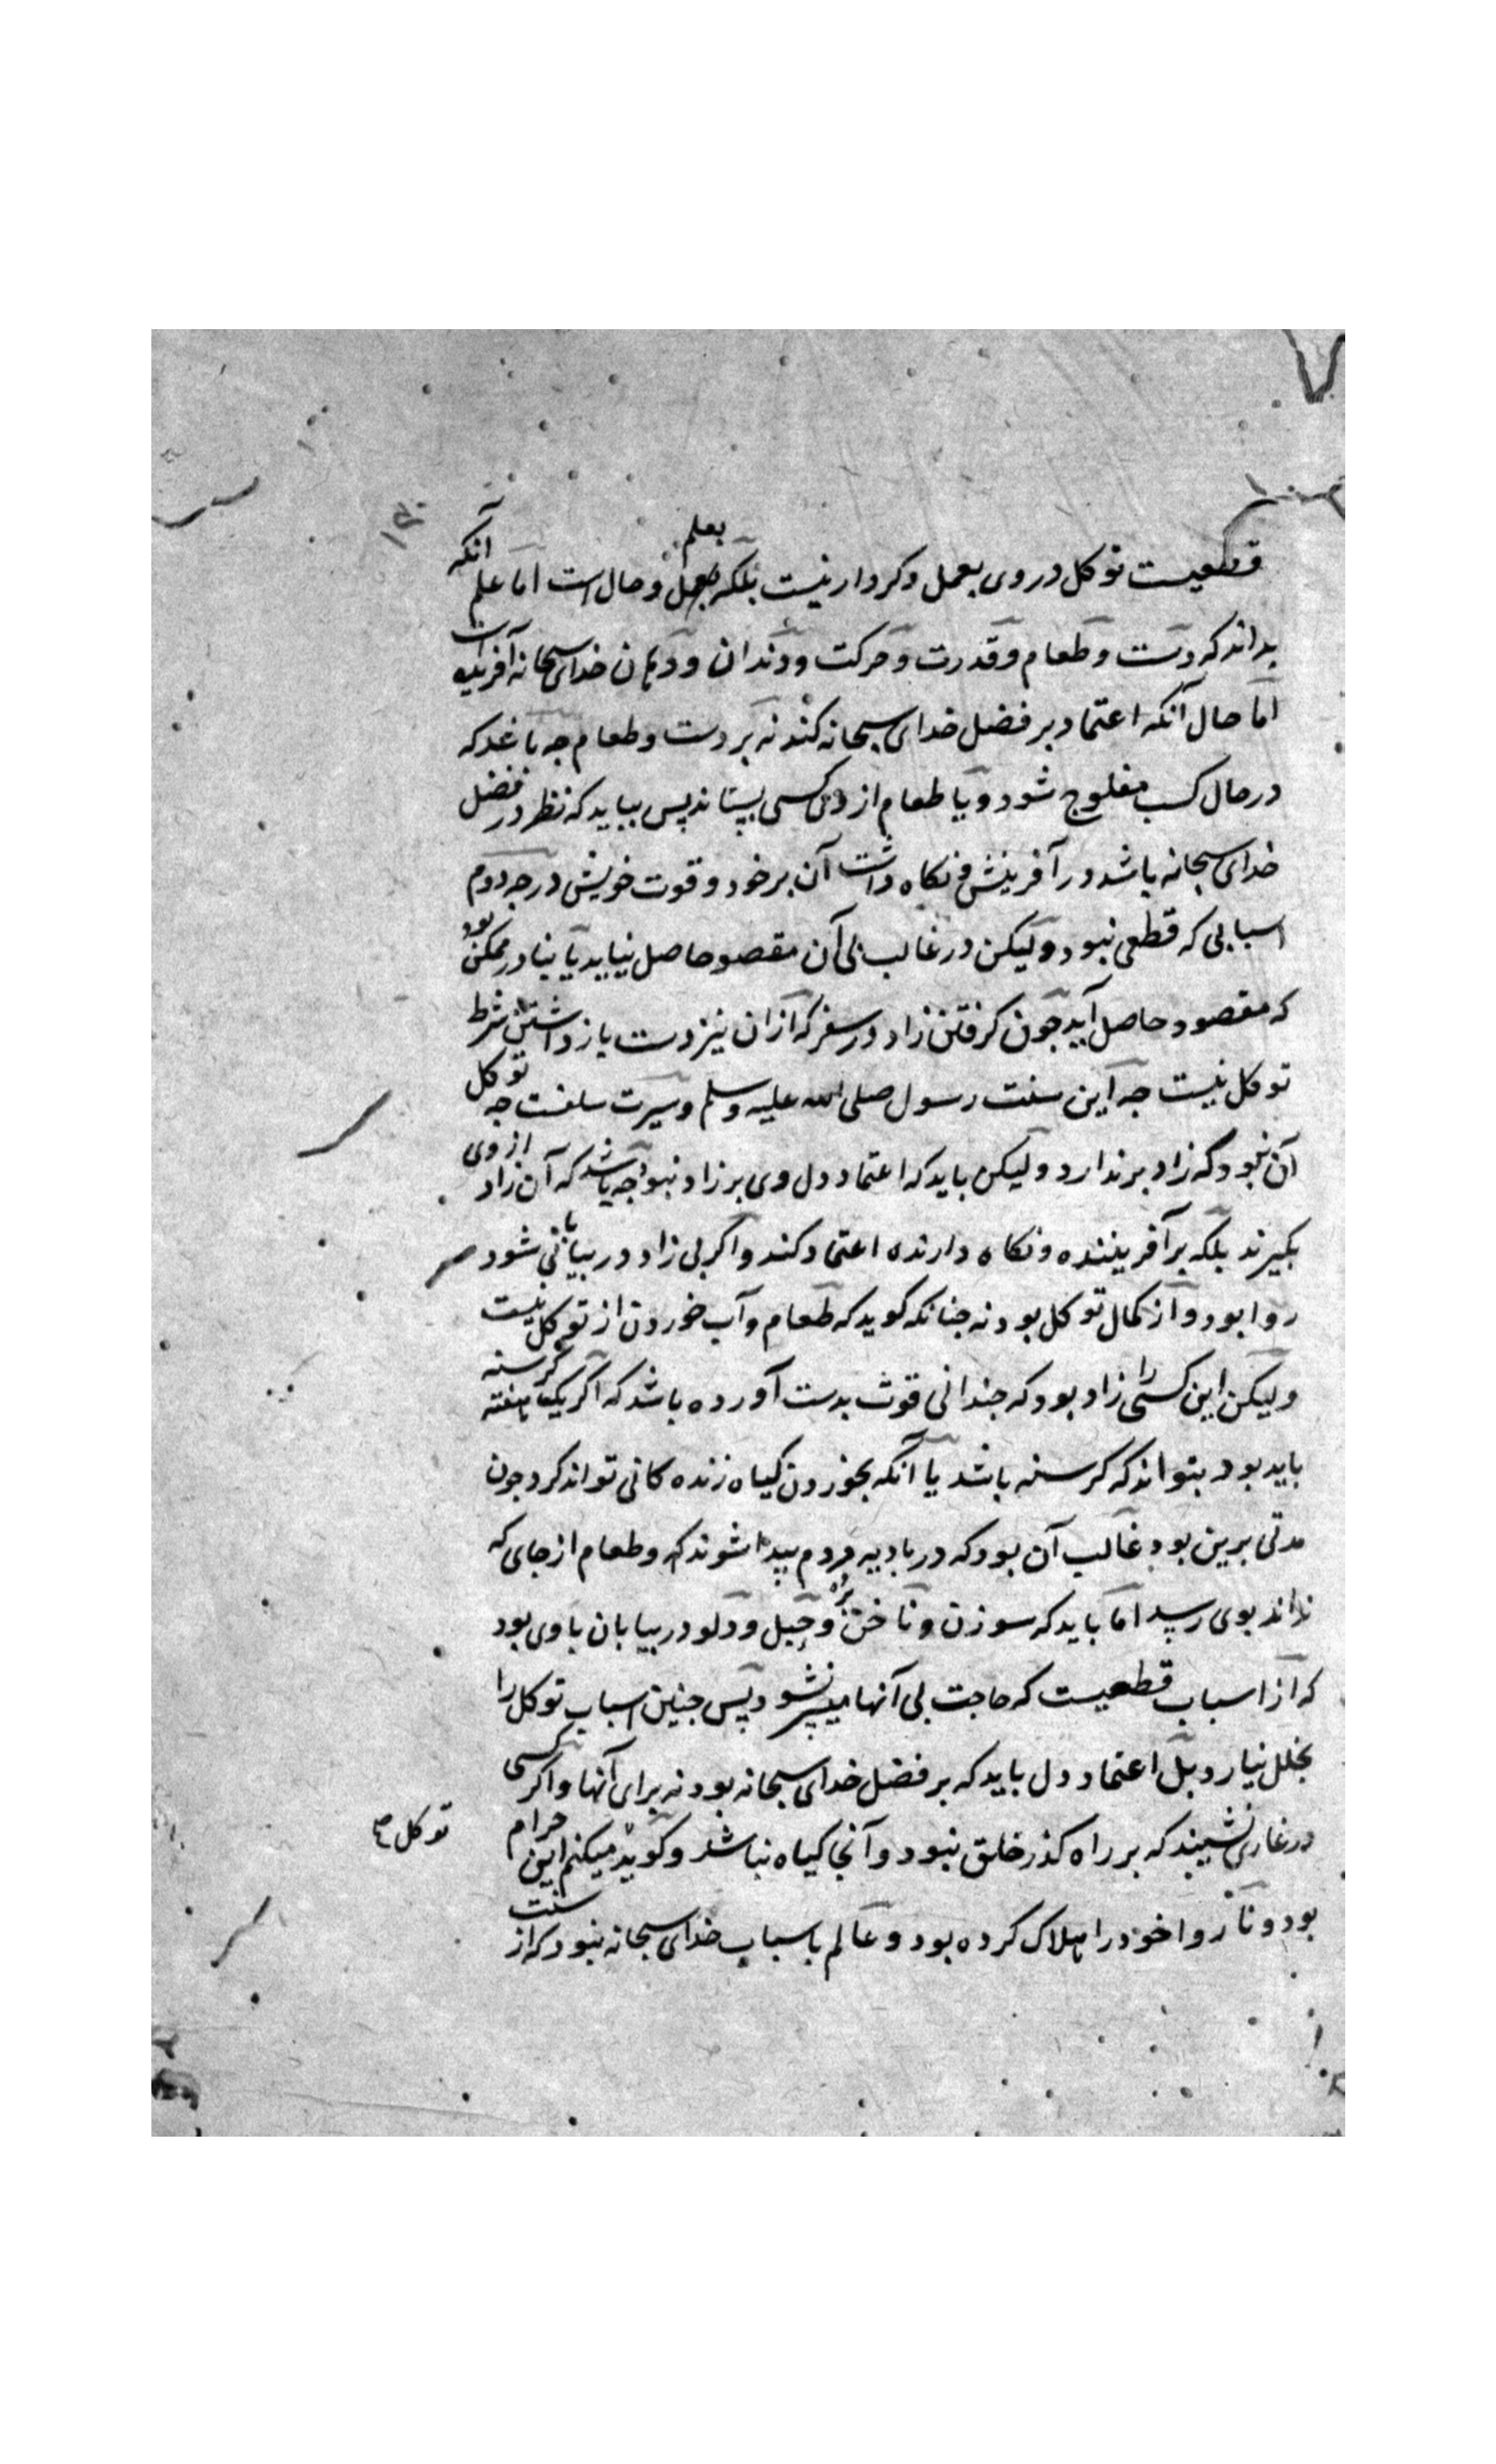 قطعیست توکل در وی بعمل وکردار نیست بلکه بعلم وحال است اما علم آنکه
بداند که دست وطعام وقدرت وحرکت ودندان ودهان خدای سبحانه آفریده است
اما حال آنکه اعتماد بر فضل خدای سبحانه کند نه بر دست وطعام جه باشد که
در حال کسب مفلوج شود ویا طعام از وی کسی بستاند پس بباید که نظر در فضل
خدای سبحانه باشد در آفرینش ونکاه داشت آن بر خود وقوت خویش درجه دوم
اسبابی که قطعی نبود ولیکن در غالب بی آن مقصود حاصل نیاید یا بنادر ممکن بود
که مقصود حاصل آید جون کرفتن زاد در سفر که ازان نیز دست باز داشتن شرط
توکل نیست جه این سنت رسول صلی الله علیه وسلم وسیرت سلفست جه توکل
آن نبود که زاد برندارد ولیکن باید که اعتماد دل وی بر زاد نبود جه باشد که آن زاد از وی
بکیرند بلکه بر آفریننده ونکاه دارنده اعتماد کند واکر بی زاد در بیابانی شود
روا بود واز کمال توکل بود نه جنانکه کوید که طعام وآب خوردن از توکل نیست
ولیکن این کسی را زاد بود که جندانی قوت بدست آورده باشد که اکر یک هفته کرسنه
باید بود بتواند که کرسنه باشد یا آنکه بخوردن کیاه زنده کانی تواند کرد وجون
مدتی برین بود غالب آن بود که در بادیه مردم پیدا شوند که وطعام از جای که
نداند بوی رسد اما باید که سوزن وناخن بره وحبل ودلو در بیابان باوی بود
که از اسباب قطعیست که حاجت بی آنها میسر نشود پس جنین اسباب توکل را
بخلل نیارد بل اعتماد دل باید که بر فضل خدای سبحانه بود نه برای آنها واکر کسی
در غاری نشیند که بر راه کذر خلق نبود وآنجا کیاه نباشد وکوید میکنم این حرام
توکل
بود وناروا خود را هلاک کرده بود وعالم باسباب خدای سبحانه نبود که از سنت